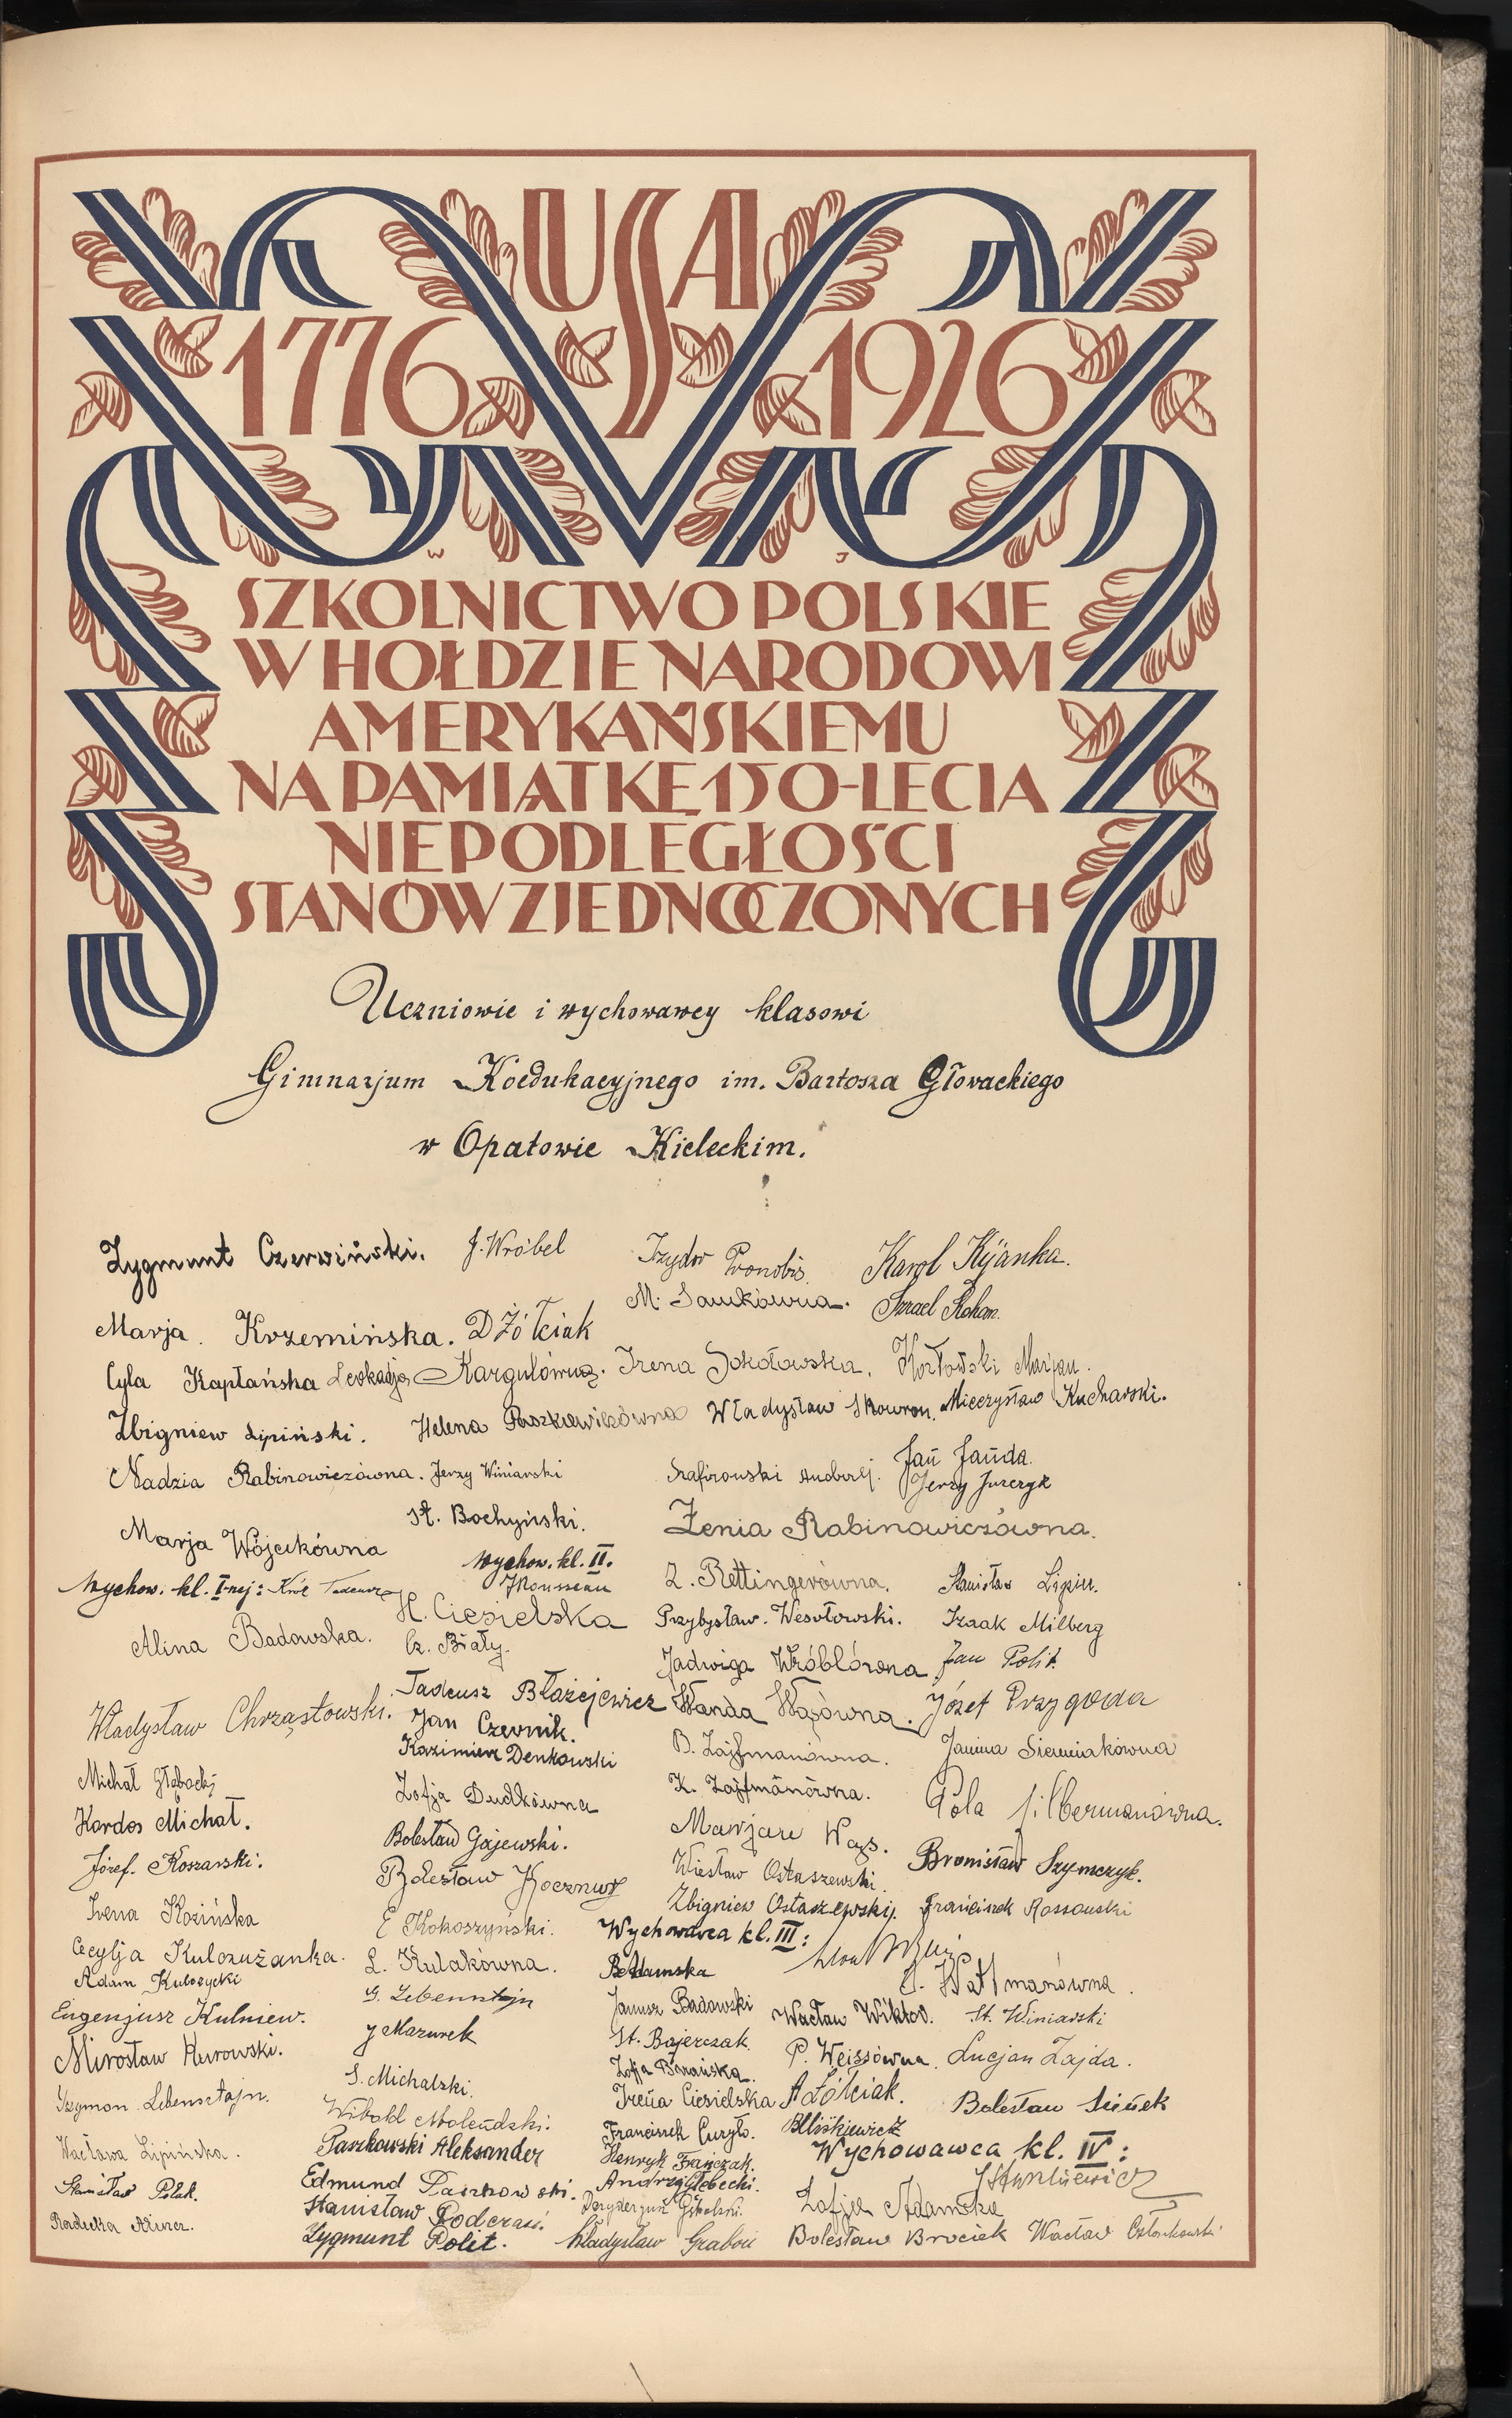 USA
1776 1926
W J
SZKOLNICTWO POLSKIE
W HOŁDZIE NARODOWI
AMERYKAŃSKIEMU
NA PAMIĄTKĘ 150-LECIA
NIEPODLEGŁOŚCI
STANÓW ZJEDNOCZONYCH
Uczniowie i wychowawcy klasowi
Gimnazjum Koedukacyjnego im. Bartosza Głowackiego
w Opatowie Kieleckim.
Zygmunt Czerwiński. J. Wróbel Izydor Pronobis. Karol Kijanka.
Marja Krzemińska. D Żółciak M. Sawkówna. Szmul
Cyla Kapłańska Leokadja Kargulówna. Irena Sokołowska. Kozłowski Marjan.
Zbigniew Lipiński. Helena Paszkiewiczówna Władysław Skowron. Mieczysław Kucharski.
Nadzia Rabinowiczówna. Jerzy Winiarski Szafirowski Andrzej. Jan Janda.
Jerzy Jurczyk
St. Bochyński. Żenia Rabinowiczówna.
Marja Wójcikówna
Wychow. kl. II.
JRousseau
Wychow. kl. I-wej: Król Tadeusz
Z. Rettingerówna. Stanisław Lipiec.
H. Ciesielska Przybysław. Wesołowski. Izaak Milberg
Alina Badowska. Cz. Biały.
Jadwiga Wróblówna Jan Polit.
Władysław Chrząstowski. Tadeusz Błażejewicz Wanda Wąsówna. Józef Przygoda
Jan Czernik.
Kazimierz Denkowski B. Zajfmanówna. Janina Siemniakówna
Michał Głębocki Zofja Dudkówna K. Zajfmanówna. Pola Silbermanówna.
Kordos Michał.
Bolesław Gajewski. Marjan Wąs.
Józef. Koszarski. Bronisław Szymczyk.
Bolesław Wiesław Ostaszewski.
Irena Kozińska Zbigniew Ostaszewski. Franciszek Rossowski
E Kokoszyński. Wychowawca kl. III:
Cecylja Kulczużanka. L. Kulakówna. BAdamska Wattmanówna.
Adam Kulczycki
G. Lebensztejn Janusz Badowski Wacław Wiktor. St. Winiarski
Eugenjusz Kulniew.
J Mazurek St. Bajerczak. P. Weissówna. Lucjan Zajda.
Mirosław Kurowski.
S. Michalski. Zofja Banańska.
Irena Ciesielska A Żółciak. Bolesław Sieńek
Szymon Lebensztajn. Witold Molendski.
Franciszek Curyło. BLiśkiewicz
Wacława Lipińska. Paszkowski Aleksander Henryk Frańczak. Wychowawca kl. IV:
Edmund Paszkowski. Andrzej Głębocki.
Stanisław Polak. Zofja Adamska
Stanisław Podczasi.
Zygmunt Polit. Władysław Graboń Bolesław Brociek Wacław Członkowski